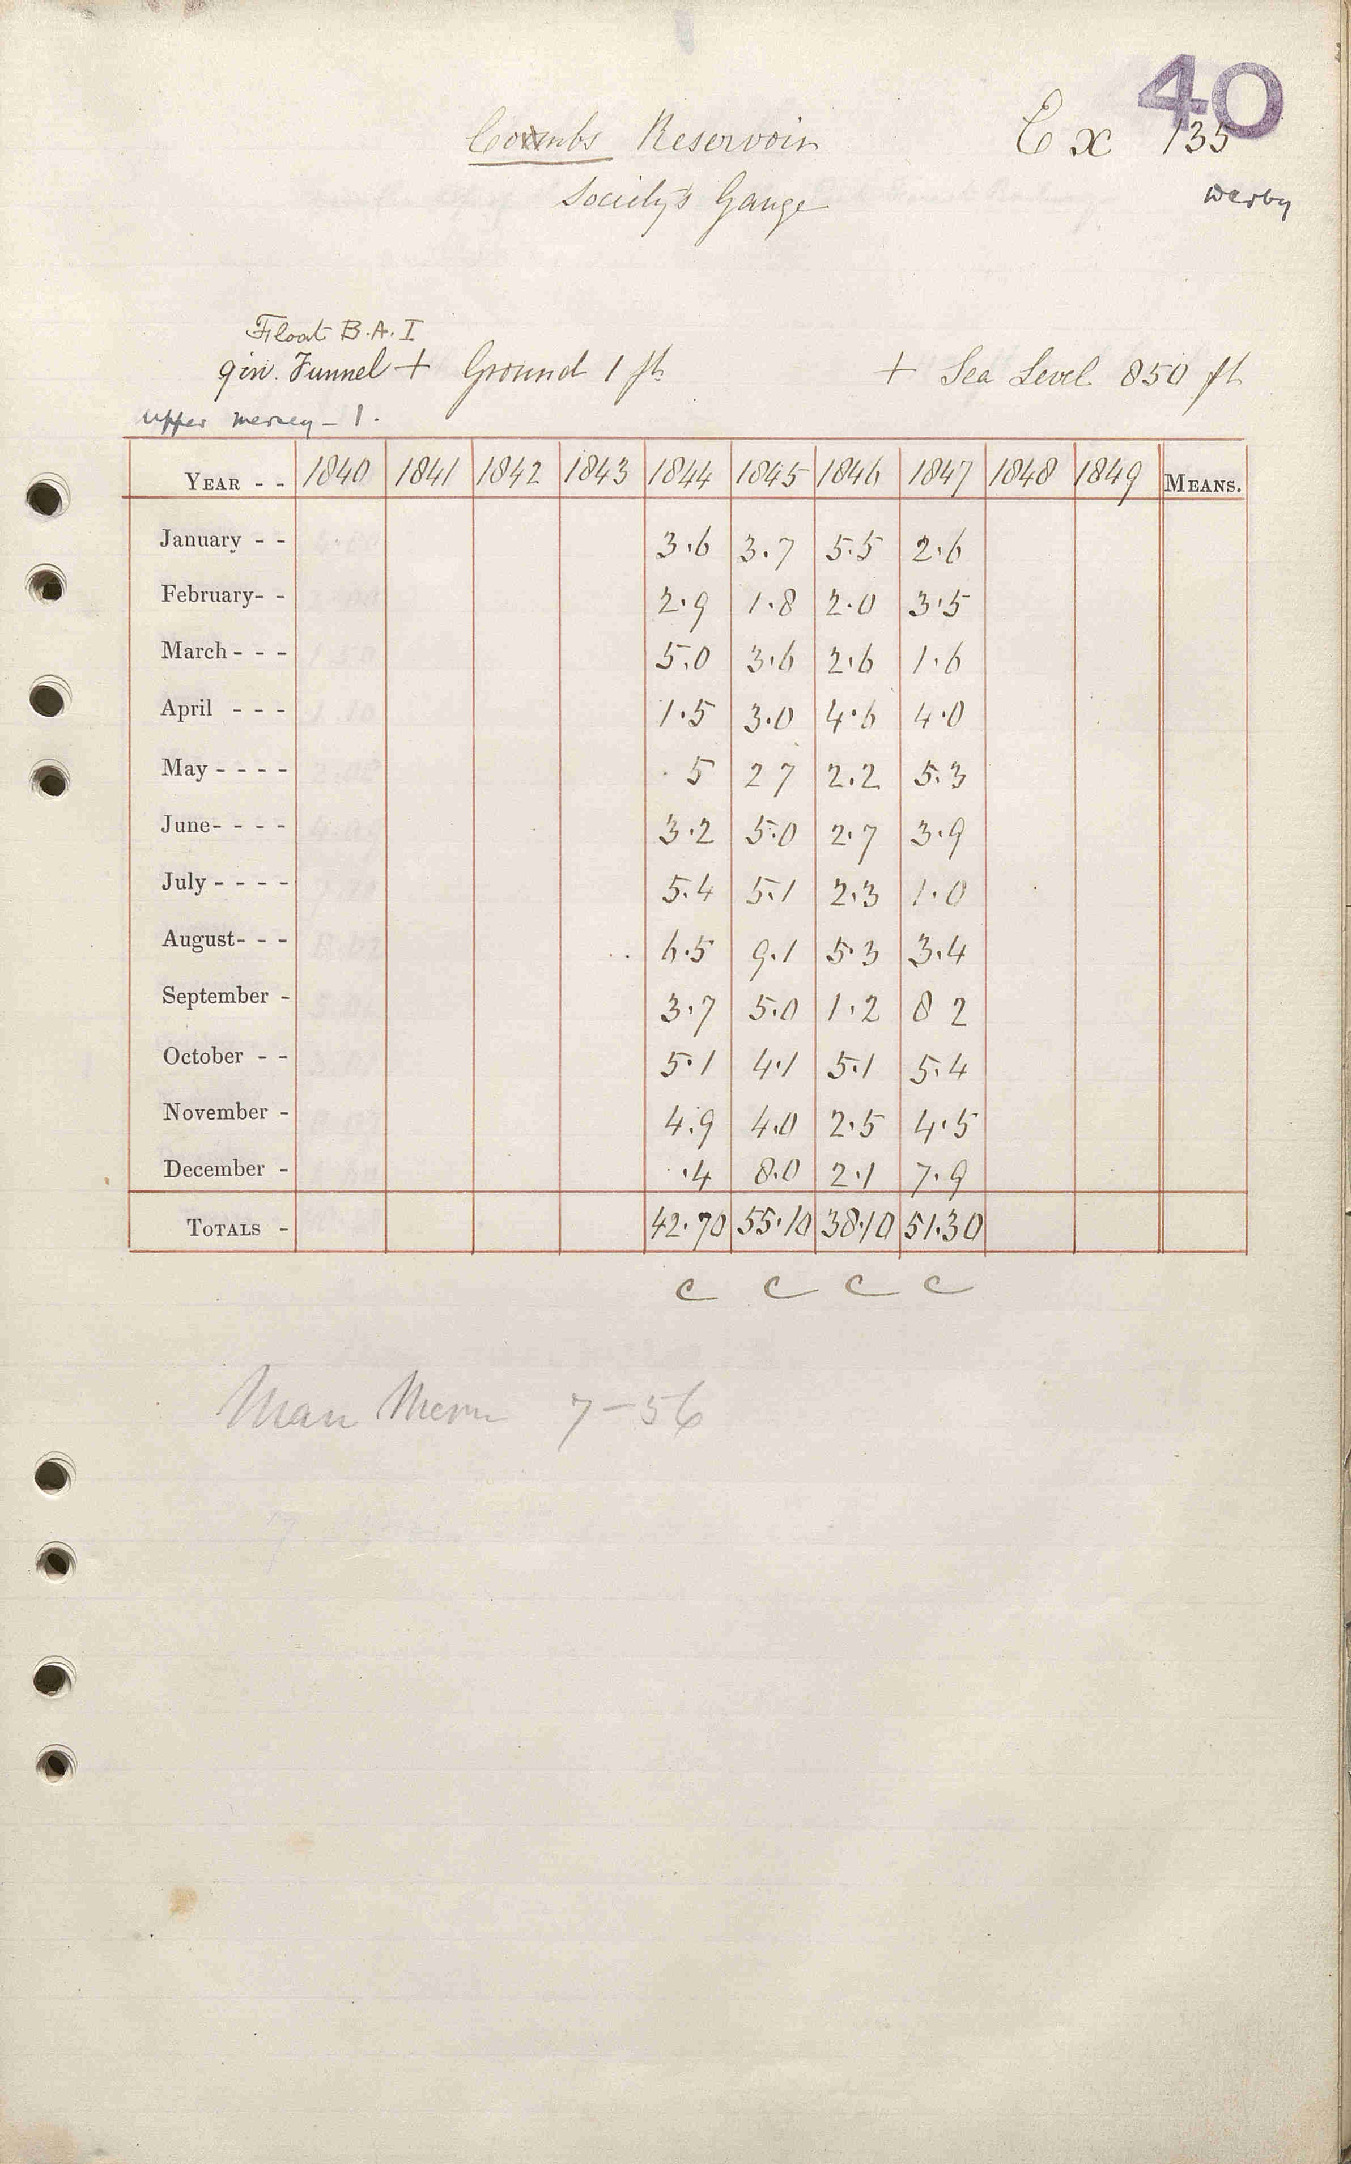 40
Coombs Reservoir Ex 135
Society's Gauge Derby
Float B.A.I
9 in. Funnel + Ground 1 ft + Sea Level 850 ft
Upper Mersey - 1.
YEAR - - 1840 1841 1842 1843 1844 1845 1846 1847 1848 1849 MEANS.
January - - 3.6 3.7 5.5 2.6
February- - 2.9 1.8 2.0 3.5
March - - - 5.0 3.6 2.6 1.6
April - - - 1.5 3.0 4.6 4.0
May - - - - .5 2 7 2.2 5.3
June- - - - 3.2 5.0 2.7 3.9
July - - - - 5.4 5.1 2.3 1.0
August- - - 6.5 9.1 5.3 3.4
September - 3.7 5.0 1.2 8 2
October - - 5.1 4.1 5.1 5.4
November - 4.9 4.0 2.5 4.5
December - .4 8.0 2.1 7.9
TOTALS - 42.70 55.10 38.10 51.30
C C C C
Man Mem 7-56